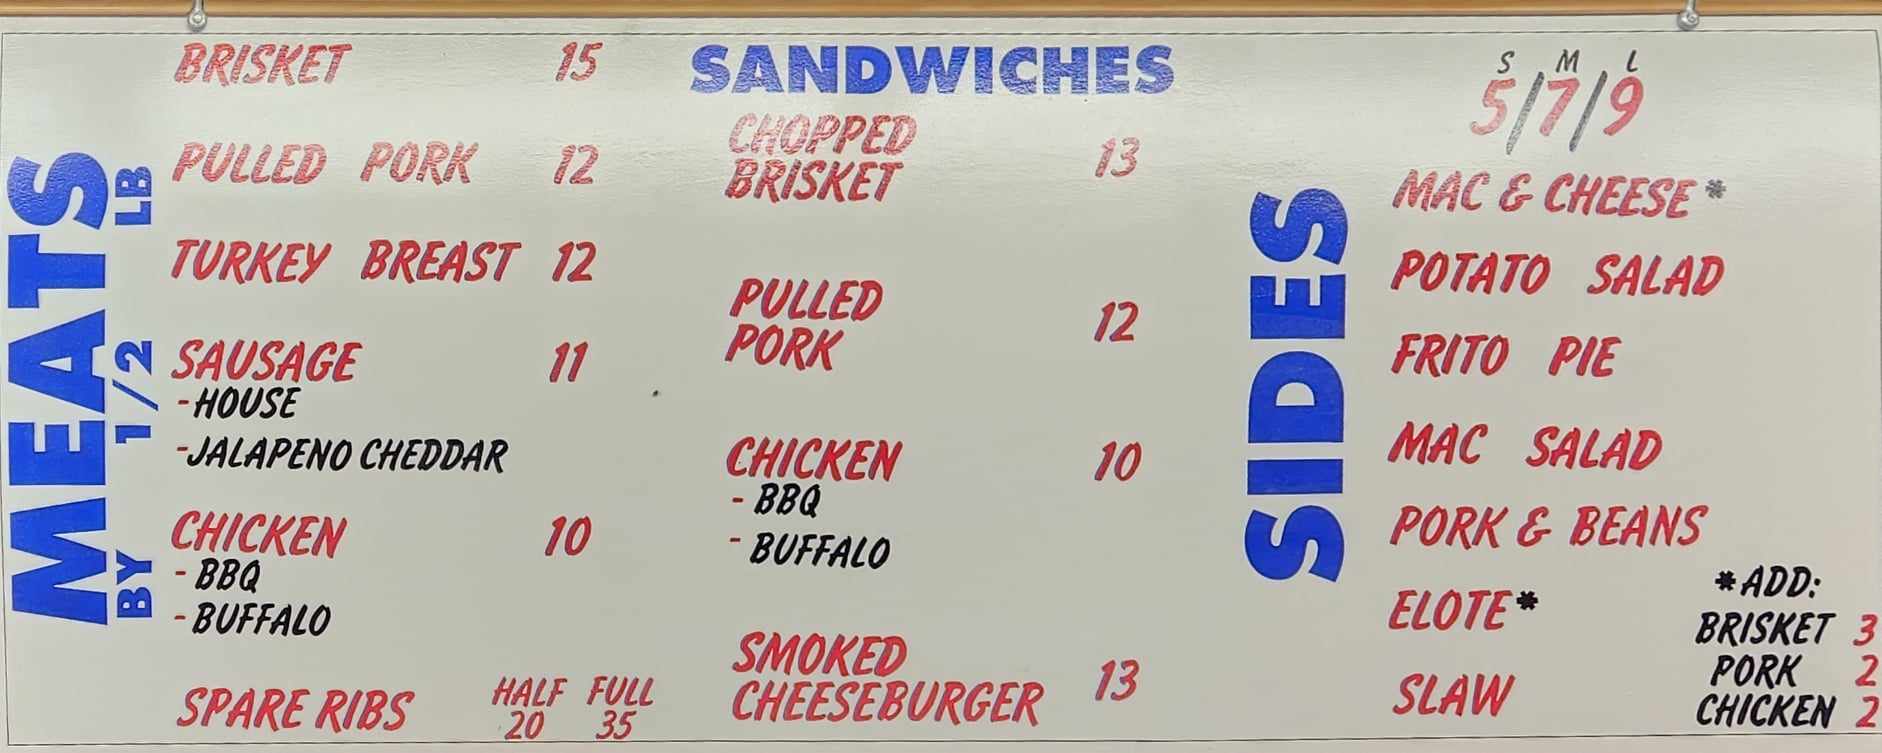 MEATS
BY 1/2 LB
BRISKET 15
PULLED PORK 12
TURKEY BREAST 12
SAUSAGE 11
-HOUSE
-JALAPENO CHEDDAR
CHICKEN 10
- BBQ
- BUFFALO
SPARE RIBS HALF FULL
20 35
SANDWICHES
CHOPPED
BRISKET 13
PULLED
PORK 12
CHICKEN 10
- BBQ
- BUFFALO
SMOKED
CHEESEBURGER 13
SIDES
S M L
5/7/9
MAC & CHEESE*
POTATO SALAD
FRITO PIE
MAC SALAD
PORK & BEANS
ELOTE*
SLAW
*ADD:
BRISKET 3
PORK 2
CHICKEN 2